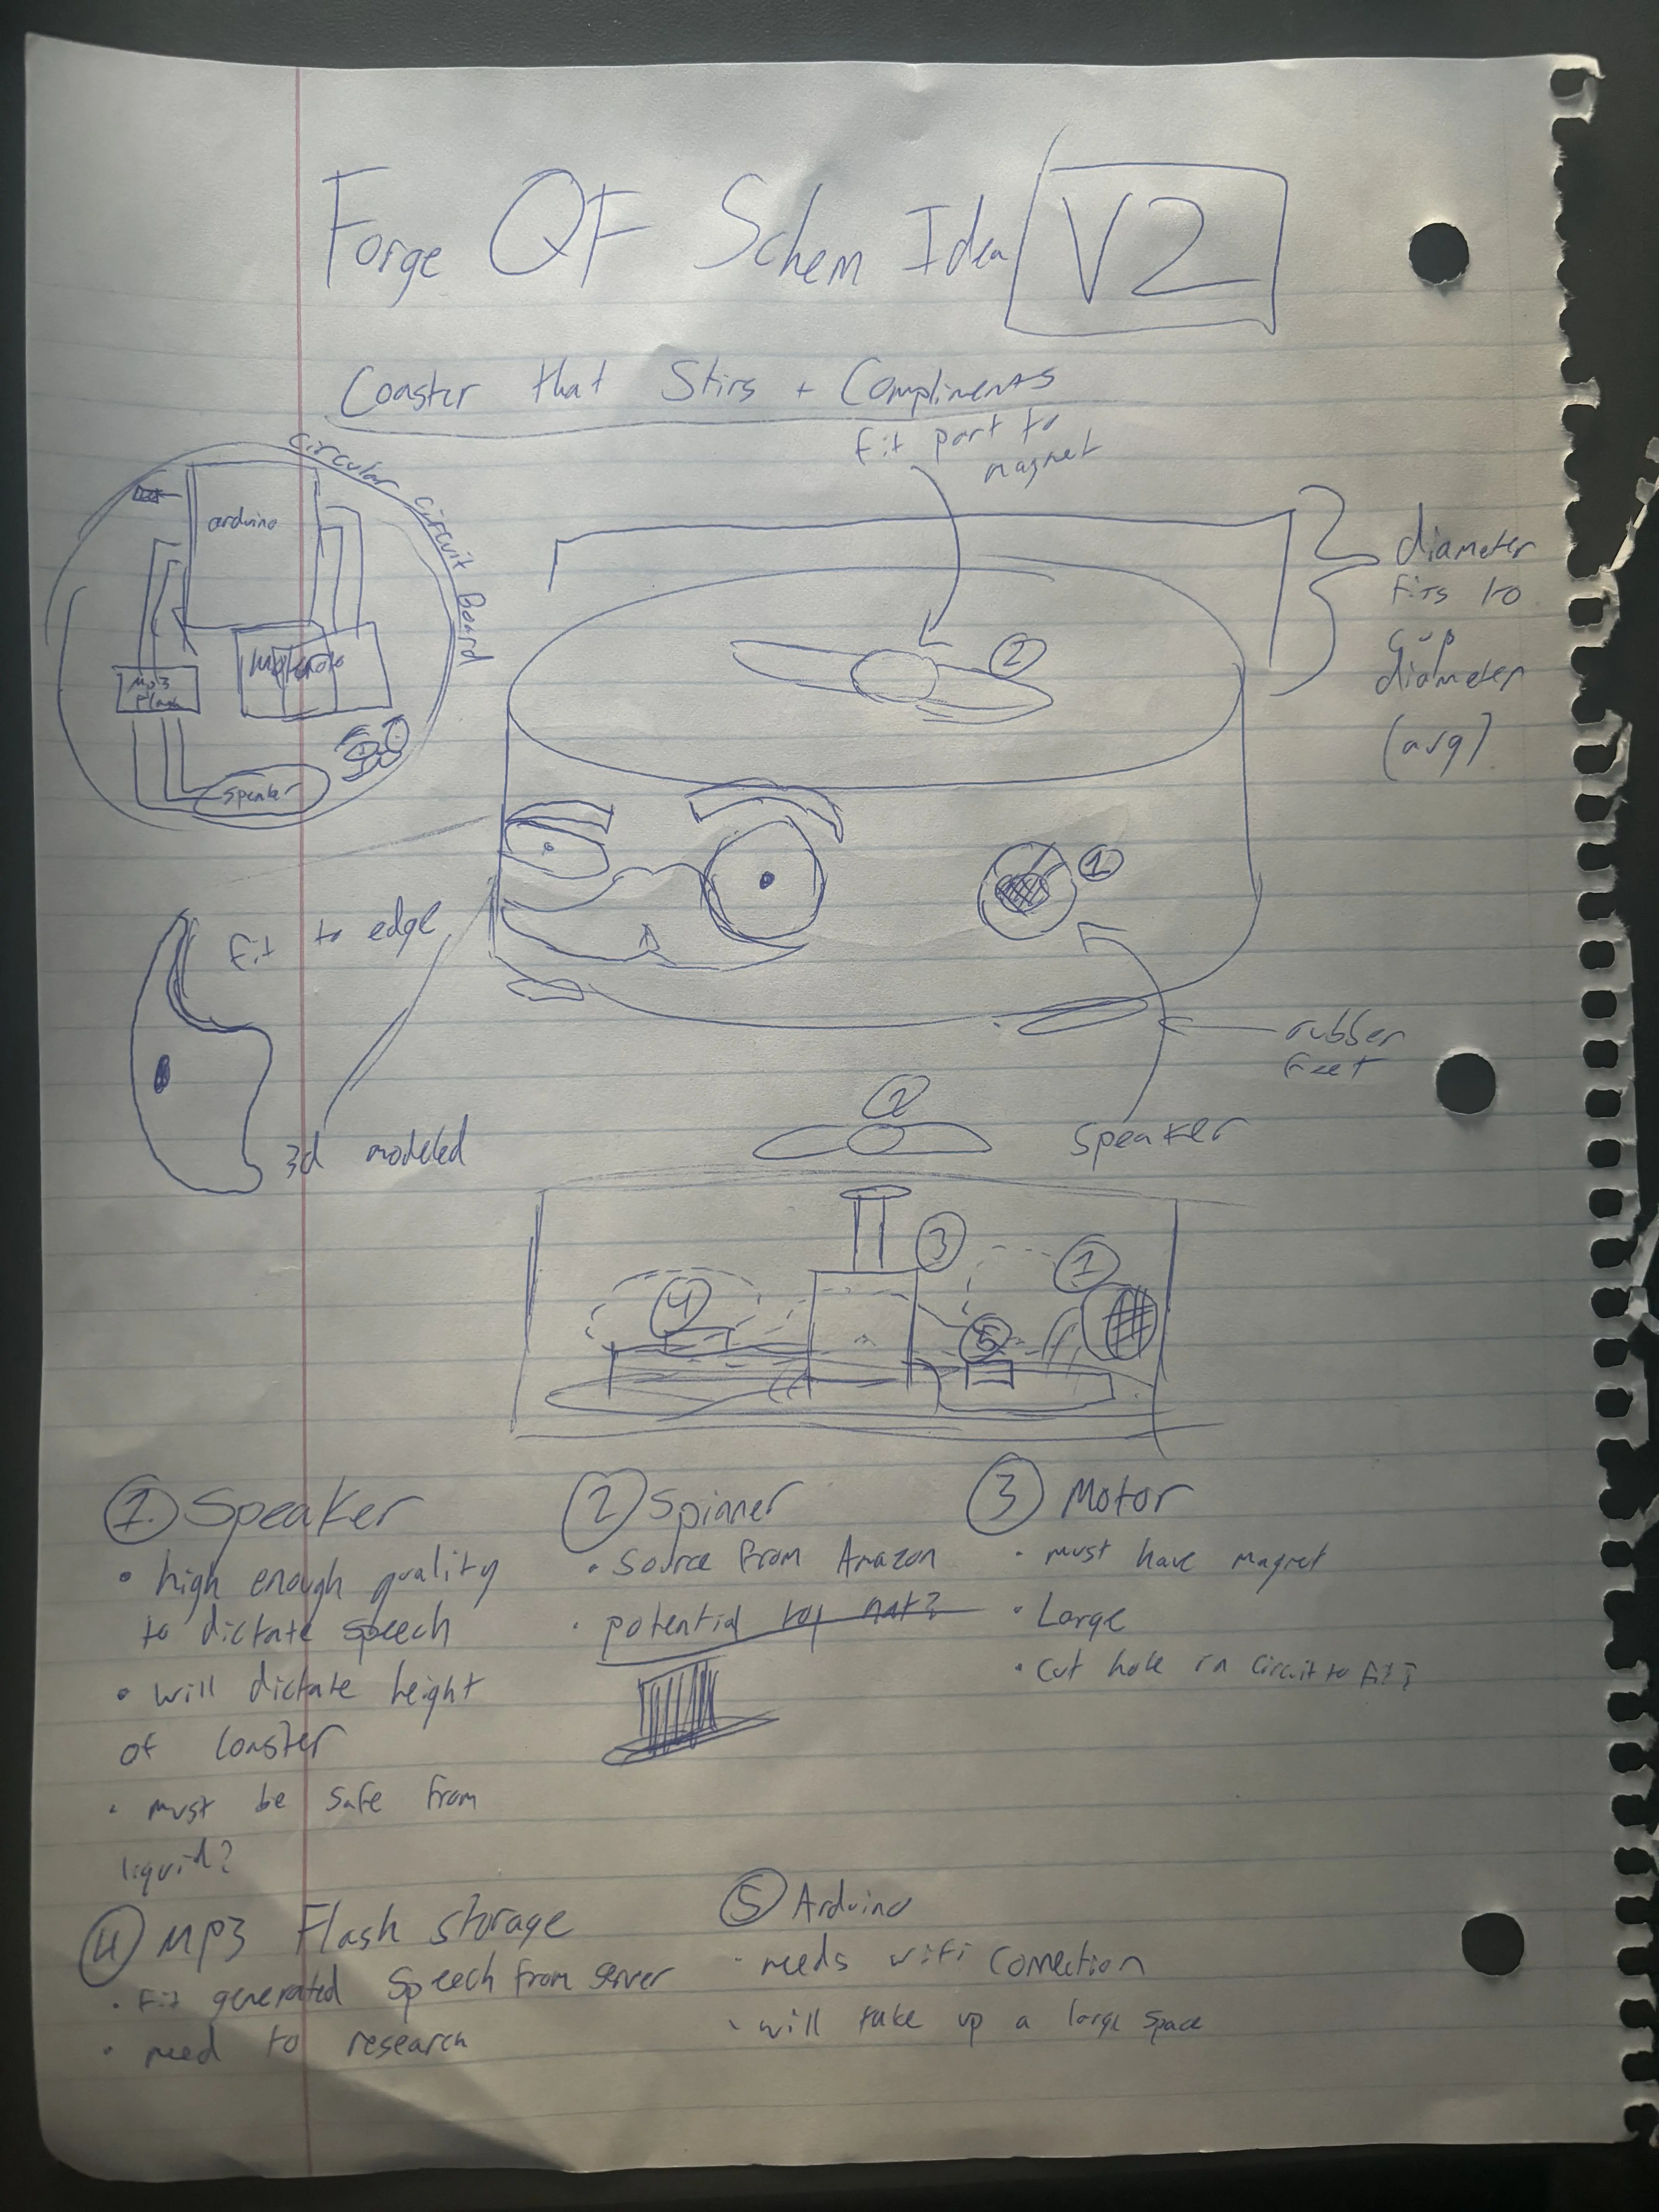 Forge QF Schem Idea V2
Coaster that Stirs + Compliments
fit part to
magnet
circular circuit board
arduino
Mp3
flash
speaker
2
diameter
fits to
cup
diameter
(avg)
1
fit to edge
3d modeled
rubber
feet
speaker
2
3
4
5
1
1. Speaker
• high enough quality
to dictate speech
• will dictate height
of coaster
• must be safe from
liquid?
2 Spinner
• Source from Amazon
• potential top hat?
3 Motor
• must have magnet
• Large
• cut hole in circuit to fit?
4 MP3 Flash storage
• Fit generated speech from server
• need to research
5 Arduino
• needs wifi connection
• will take up a large space